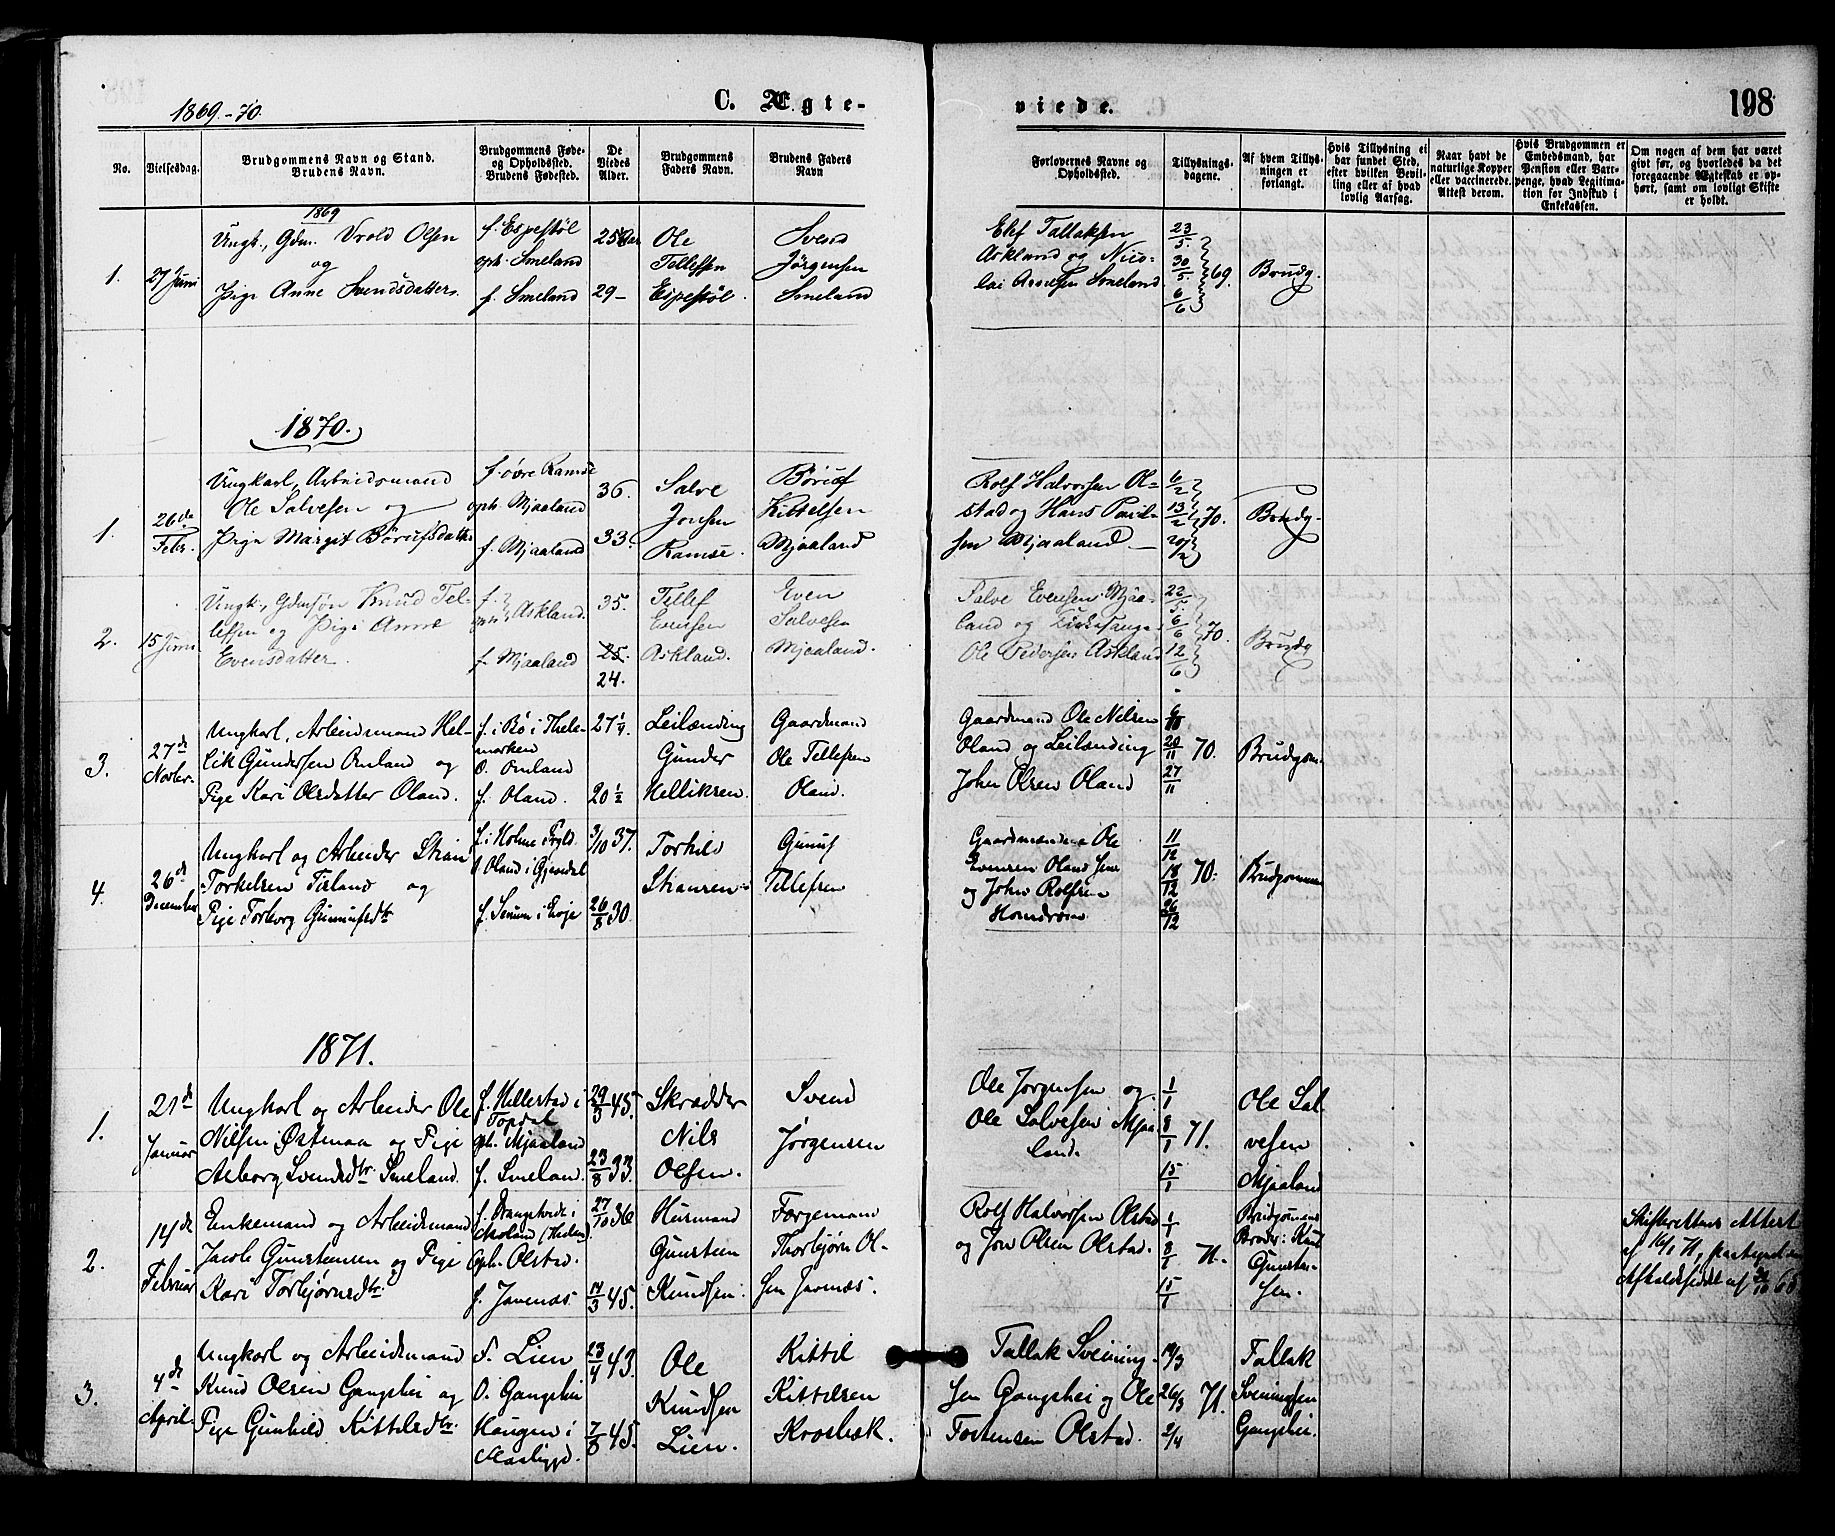 1869.-70.
C. Ægte-
viede.
198
No.
Vielsesdag.
Brudgommens Navn og Stand.
Brudens Navn.
Brudgommens Føde-
og Opholdssted.
Brudens Fødested.
De
Viedes
Alder.
Brudgommens
Faders Navn.
Brudens Faders
Navn
Forlovernes Navne og
Opholdssted.
Tillysnings-
dagene.
Af hvem Tillys-
ningen er
forlangt.
Hvis Tillysning ei
har fundet Sted,
efter hvilken Bevil-
ling eller af hvad
lovlig Aarsag.
Naar havt de
naturlige Kopper
eller vaccinerede.
Attest derom.
Hvis Brudgommen er
Embedsmand, har
Pension eller Vart-
penge, hvad Legitima-
tion for Indskud i
Enkekassen.
Om nogen af dem har været
givt før, og hvorledes da det
foregaaende Ægteskab er op-
hørt, samt om lovligt Skifte
er holdt.
1869
1.
27 Juni
Ungk., Gdm. Vrold Olsen
og
Pige Anne Svendsdatter.
f. Espestøl
oph. Smeland
f. Smeland
25 Aar
29 -
Ole
Tellefsen
Espestøl.
Svend
Jørgensen
Smeland
Elef Tallaksen
Askland og Nico-
lai Smeland
23/5.
30/5.
6/6
69.
Brudg.
1870.
1.
26de
Febr.
Ungkarl, Arbeidsmand
Ole Salvesen og
Pige Margit Børufsdatter
f. øvre Ramse
oph. Mjaaland
f. Mjaaland
36.
33.
Salve
Jonsen
Ramse.
Børuf
Kittelsen
Mjaaland
Rolf Halvorsen Ol-
stad og Hans Paul-
sen Mjaaland -
6/2
13/2
20/2
70.
Brudg.
2.
15 Juni
Ungk., Gdmsøn Knud Tel-
lefsen og Pige Anne
Evensdatter.
f.
oph. Askland.
f. Mjaaland
35.
25.
24.
Tellef
Evensen
Askland.
Even
Salvesen
Mjaaland.
Salve Evensen Mjaa-
land og Kirkesanger
Ole Pedersen Askland
22/5.
6/6
12/6
70.
Brudg
3.
27de
Novbr.
Ungkarl, Arbeidsmand Hel-
lik Gundersen Omland og
Pige Kari Olsdatter Oland.
f. i Bø i Thele-
marken
O. Omland
f. Oland.
27 1/4
20 1/2
Leilænding
Gunder
Helliksen.
Gaardmand
Ole Tellefsen
Oland.
Gaardmand Ole Nilsen
Oland og Leilænding
John Olsen Oland
20/11
27/11
70.
Brudgom.
4.
26de
December
Ungkarl og Arbeider Stian
Torkelsen og
Pige Torborg Gunnufsdtr
Oland i Gjøvdal
3/10 37.
26/8 30
Torkild
Stiansen
Gunuf
Tellefsen
Gaardmændene Ole
Evensen Oland
og John Rolfsen
11/12
18/12
26/12
70.
Brudgommen
1871.
1.
21de
Januar
Ungkarl og Arbeider Ole
Nilsen Østmoa og Pige
Asborg Svendsdtr. Smeland.
f. Hillestad i
Topdal
oph. Mjaaland
f. Smeland.
29/3 45.
23/8 33.
Skrædder
Nils
Olsen.
Svend
Jørgensen
Ole Jørgensen og
Ole Salvesen Mjaa-
land.
1/1
8/1
15/1
71.
Ole Sal
vesen
Mjaaland
2.
14de
Februar
Enkemand og Arbeidsmand
Jacob Gunsteensen og Pige
Kari Torbjørnsdtr.
oph. Olstad.
f. Jovnæs.
27/10 36
14/3 45.
Husmand
Gunsteen
Knudsen.
Thorbjørn Ol-
sen Jovnæs.
Rolf Halvorsen Olstad
og Jon Olsen Olstad.
1/1
8/1
15/1
71.
Brudgomens
Broder: Knud
Gunstein-
sen.
Skifterettens Attest
af 16/1 71,
3.
4de
April.
Ungkarl og Arbeidsmand
Knud Olsen Gangshei og
Pige Gunhild Kittelsdtr.
F. Lien
O. Gangshei
Haugen i
23/4 43.
7/8 45.
Ole
Knudsen
Lien.
Kittil
Kittelsen
Krosbæk.
Tallak Sveining-
sen Gangshei og Ole
Torstensen Olstad.
19/3
26/3
2/4
71.
Tallak
Sveiningsen
Gangshei.